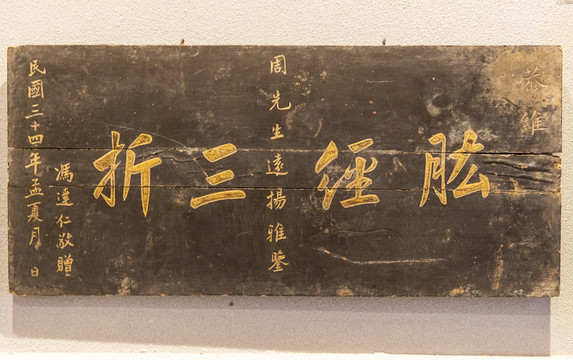 恭維
肱經三折
周先生遠揚雅鑒
民國三十四年孟夏月 日
馮達仁敬贈